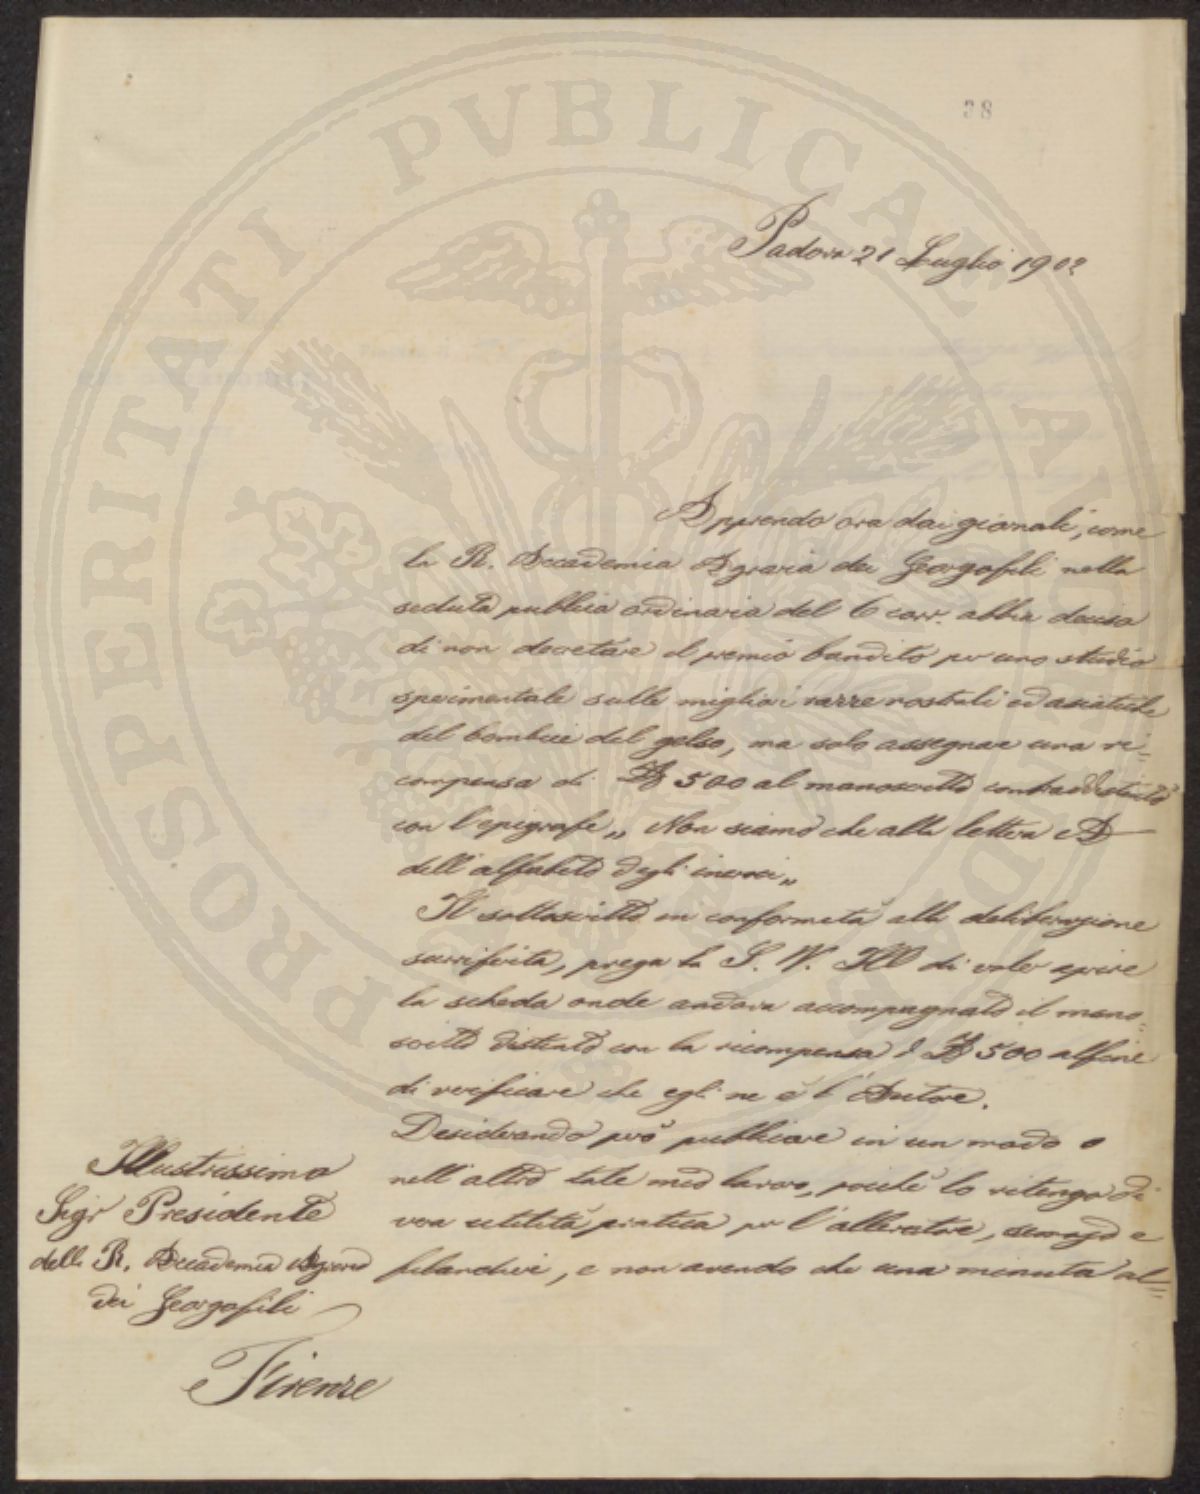 PROSPERITATI PVBLICAE AVGENDAE
38
Padova 21 Luglio 1902
Apprendo ora dai giornali, come
la R. Accademia Agraria dei Georgofili nella
seduta pubblica ordinaria del 6 corr. abbia deciso
di non decretare il premio bandito per uno studio
sperimentale sulle migliori razze nostrali ed asiatiche
del bombice del gelso, ma solo assegnare una ri-
compensa di £ 500 al manoscritto contraddistinto
con l'epigrafe „ Non siamo che alla lettera A
dell'alfabeto degli incroci „
Il sottoscritto in conformità alla deliberazione
surriferita, prega la S. V. Ill di voler aprire
la scheda onde andava accompagnato il mano-
scritto distinto con la ricompensa di £ 500 affine
di verificare che egli ne è l'Autore.
Desiderando però pubblicare in un modo o
nell'altro tale mio lavoro, poichè lo ritengo di
vera utilità pratica per l'allevatore, semajo e
filandiere, e non avendo che una minuta al=
Illustrissimo
Sigr Presidente
della R. Accademia Agraria
dei Georgofili
Firenze